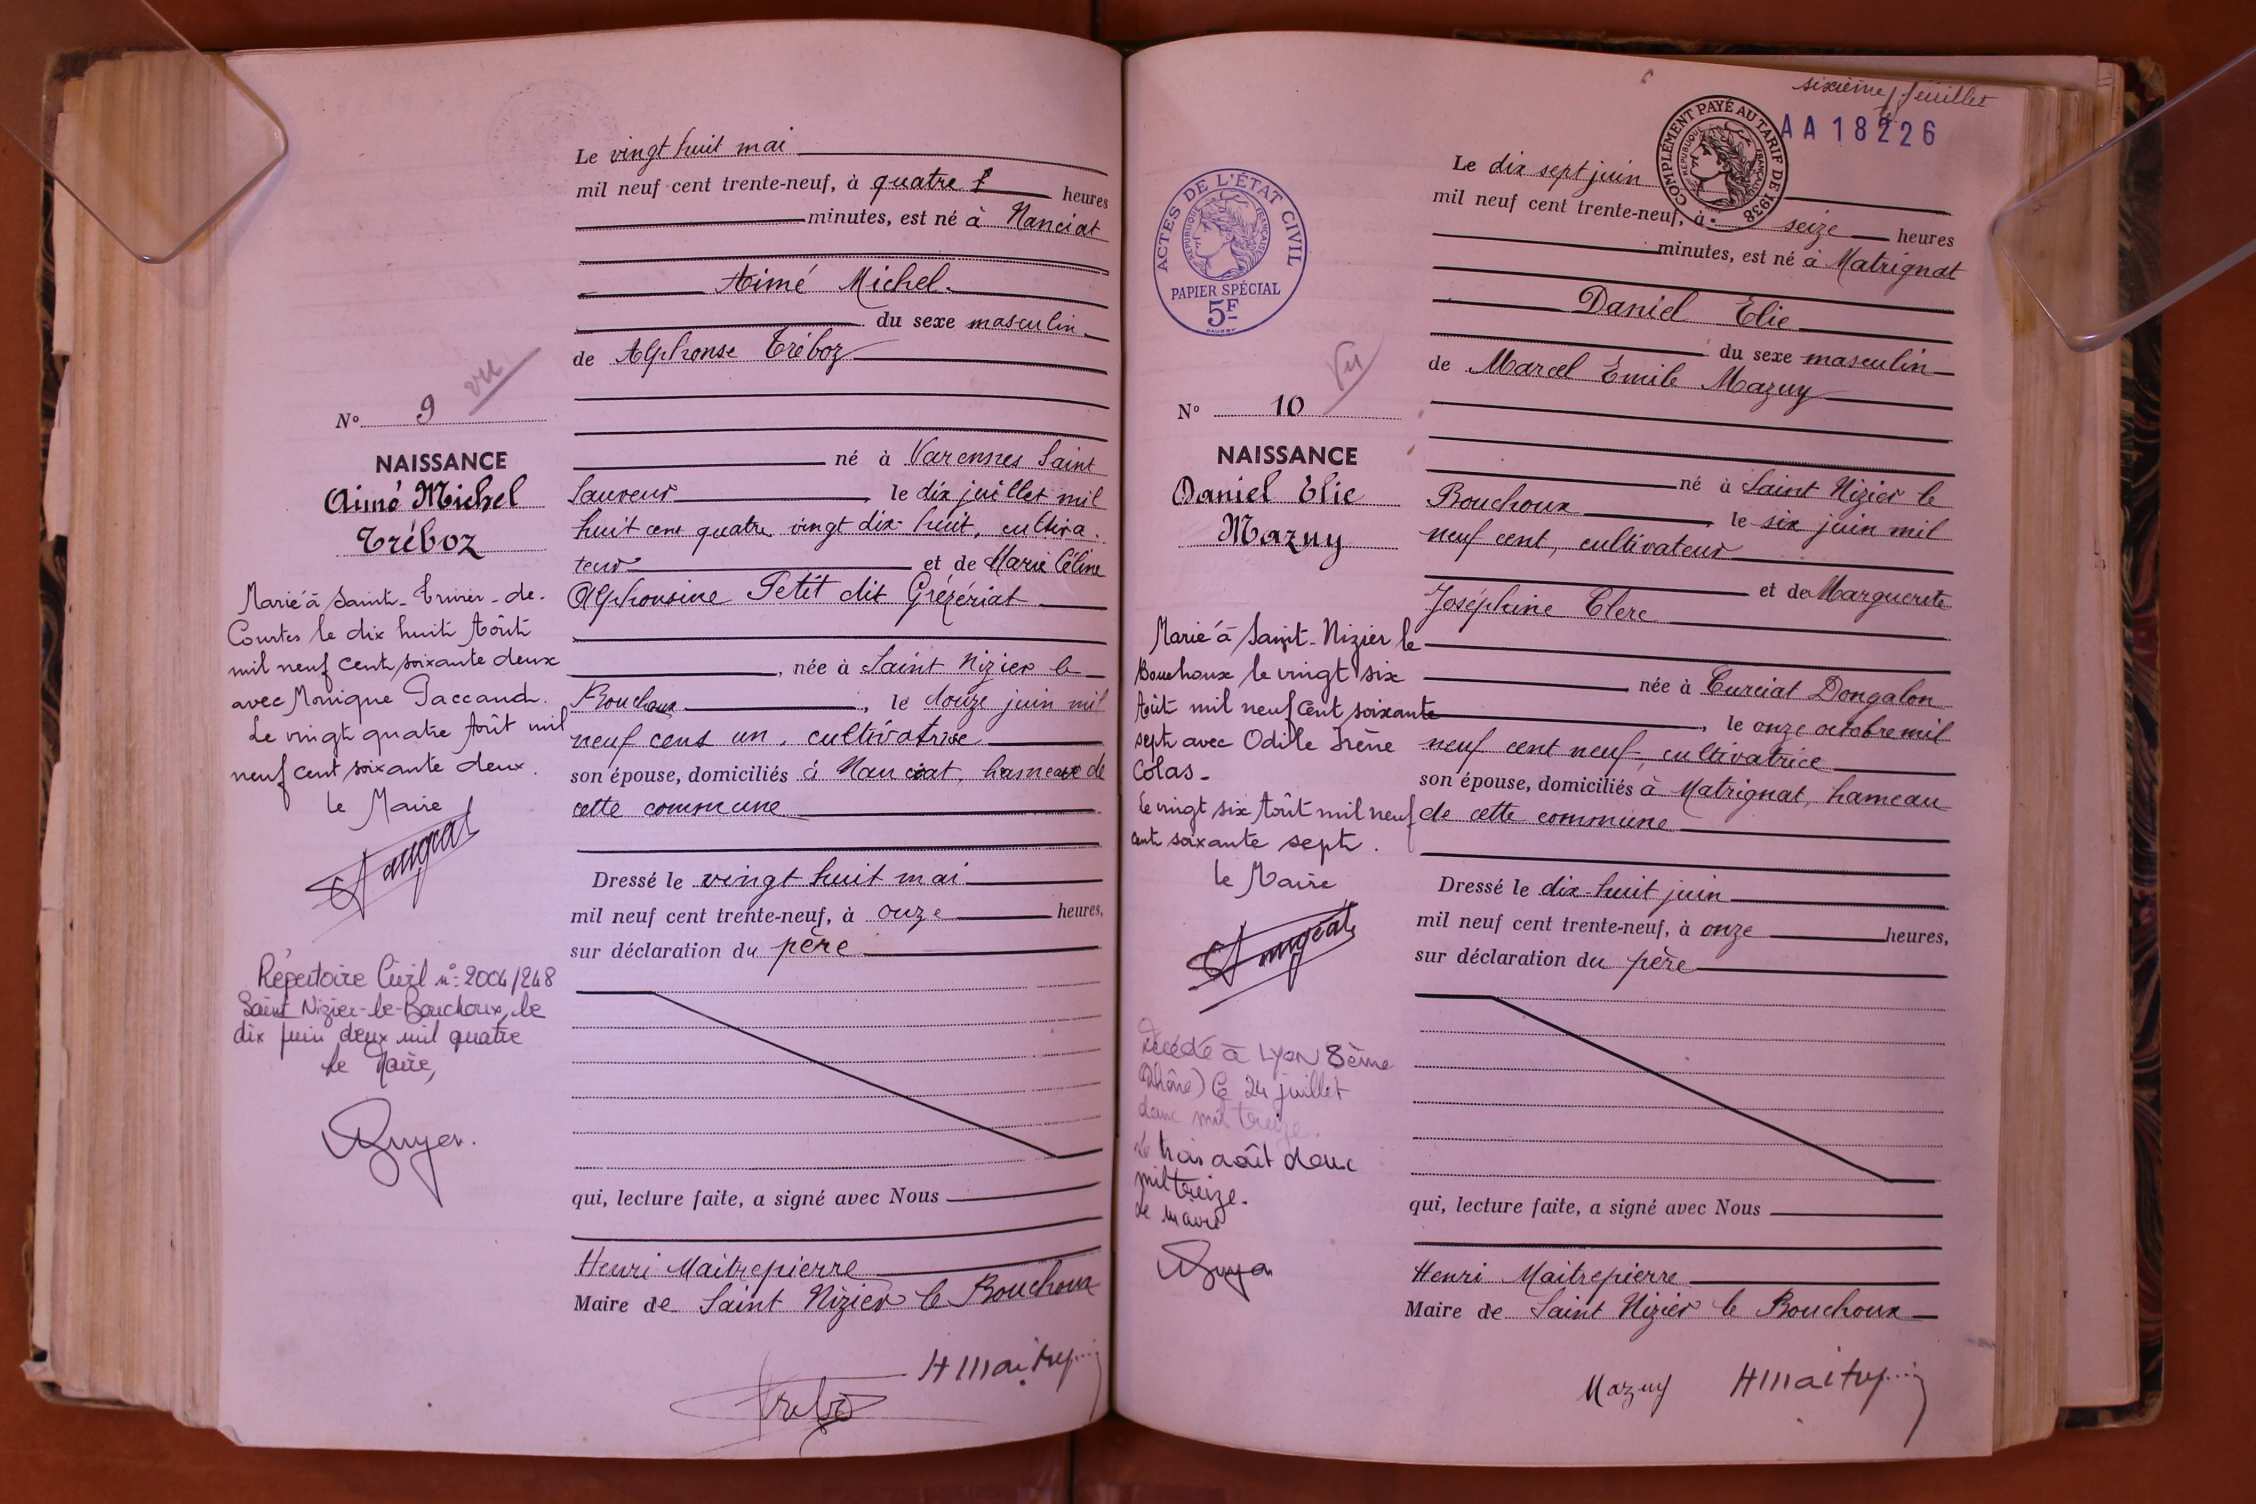 Le vingt huit mai
mil neuf cent trente-neuf, à quatre heures
minutes, est né à Nanciat
Aimé Michel
du sexe masculin
de Alphonse Tréboz
vu
N° 9
NAISSANCE
Aimé Michel
Tréboz
né à Varennes Saint
Sauveur le dix juillet mil
huit cent quatre vingt dix-huit, cultiva-
teur et de Marie Céline
Alphonsine Petit dit Grézériat
, née à Saint Nizier le
Bouchoux, le douze juin mil
neuf cent un, cultivatrice
son épouse, domiciliés à Nanciat, hameau de
cette commune
Dressé le vingt huit mai
mil neuf cent trente-neuf, à onze heures,
sur déclaration du père
qui, lecture faite, a signé avec Nous
Henri Maitrepierre
Maire de Saint Nizier le Bouchoux
Marié à Saint-Trivier-de-
Courtes le dix huit Août
mil neuf cent soixante deux
avec Monique Paccaud.
Le vingt quatre Août mil
neuf cent soixante deux.
le Maire
Répertoire Civil n° 2004/248
Saint Nizier-le-Bouchoux, le
dix juin deux mil quatre
Le Maire,
Guyon.
Trebo
H Maitrep
sixième feuillet
AA 18226
COMPLÉMENT PAYÉ AU TARIF DE 1938
RÉPUBLIQUE FRANÇAISE
ACTES DE L'ÉTAT CIVIL
RÉPUBLIQUE FRANÇAISE
PAPIER SPÉCIAL
5F
Le dix sept juin
mil neuf cent trente-neuf, à seize heures
minutes, est né à Matrignat
Daniel Elie
du sexe masculin
de Marcel Émile Mazuy
Vu
N° 10
NAISSANCE
Daniel Elie
Mazuy
né à Saint Nizier le
Bouchoux le six juin mil
neuf cent, cultivateur
et de Marguerite
Joséphine Clerc
née à Curciat Dongalon
, le onze octobre mil
neuf cent neuf, cultivatrice
son épouse, domiciliés à Matrignat, hameau
de cette commune
Dressé le dix-huit juin
mil neuf cent trente-neuf, à onze heures,
sur déclaration du père
qui, lecture faite, a signé avec Nous
Henri Maitrepierre
Maire de Saint Nizier le Bouchoux
Marié à Saint-Nizier le
Bouchoux le vingt six
Août mil neuf cent soixante
sept avec Odile Irène
Colas-
le vingt six Août mil neuf
cent soixante sept.
le Maire
Décédé à Lyon 8ème
(Rhône) le 24 juillet
deux mil treize.
le trois août deux
mil treize.
Le Maire
Guyon
Mazuy
H Maitrep